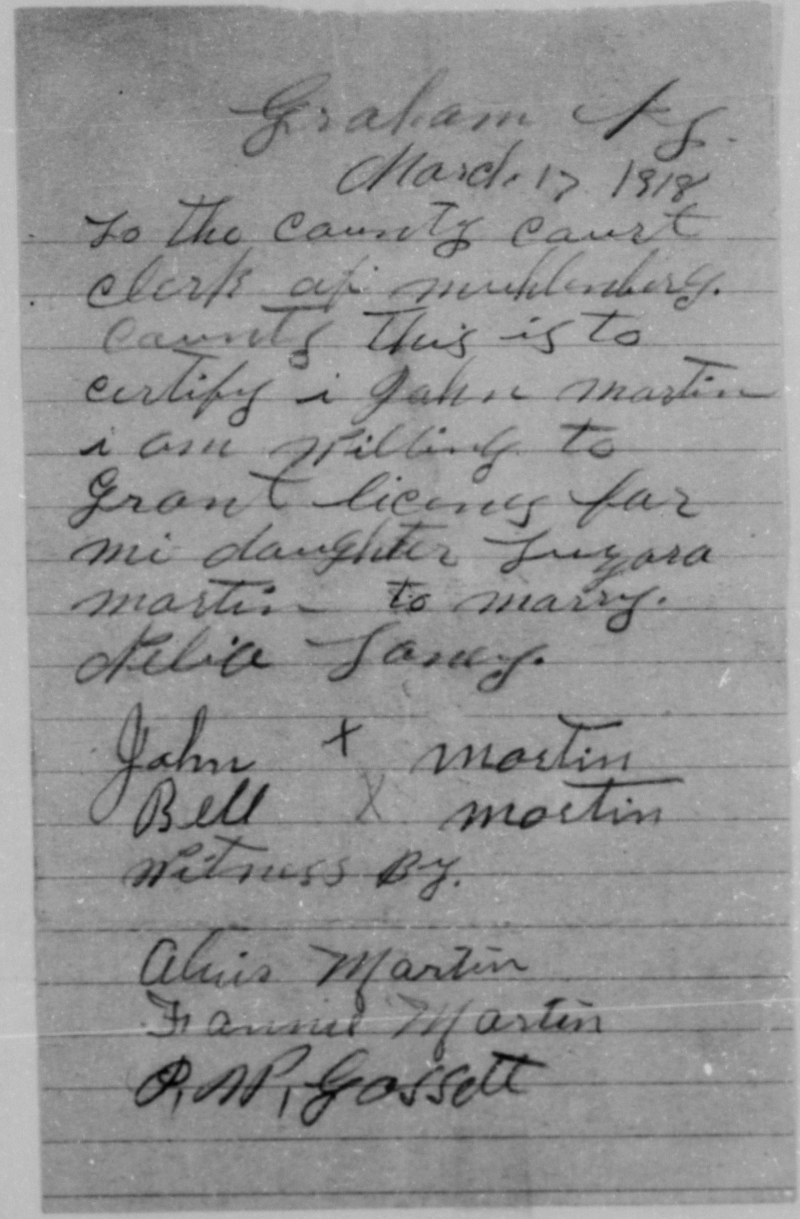 Graham Ky.
March 17 1918
To the county court
clerk of muhlenberg.
county this is to
certify i John martin
i am willing to
Grant licens for
mi daughter Luzora
martin to marry.
John + martin
Bell X martin
Witness By.
Martin
Fannie Martin
Gossett